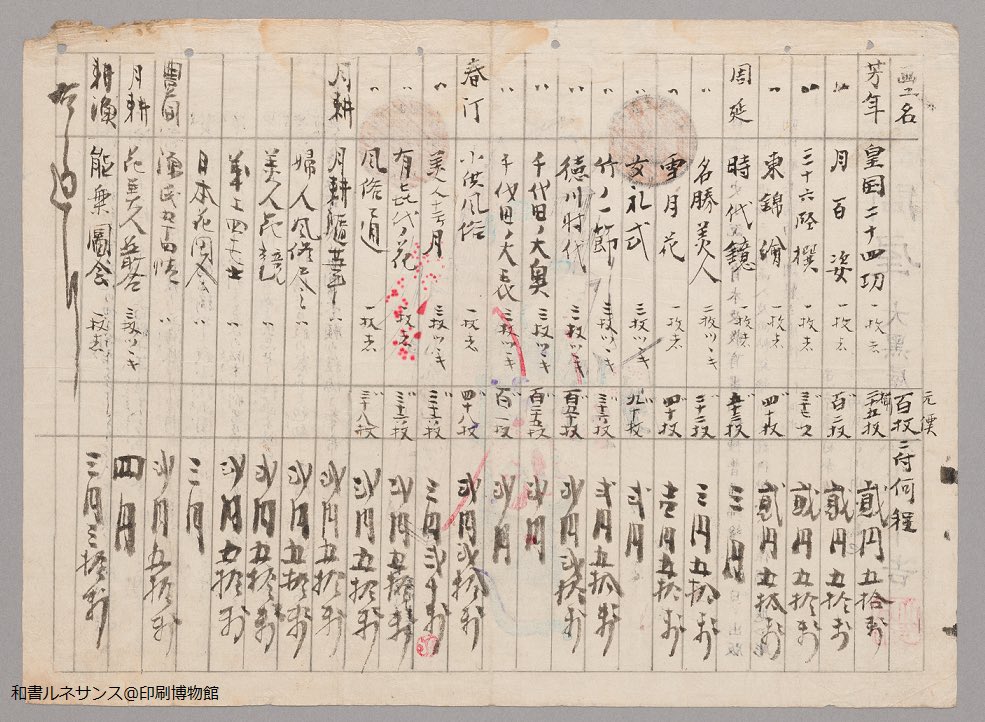 畫名 元價百枚ニ付何程
芳年 皇国二十四功 一枚 三十五枚 貳円五拾銭
〃 月百姿 一枚 百二枚 貳円五拾銭
〃 三十六怪撰 一枚 貳円五拾銭
〃 東錦繪 一枚 四十枚 貳円五拾銭
周延 時代鏡 一枚 三円
〃 名勝美人 二枚ツヽキ 三十二枚 三円五拾銭
〃 雪月花 一枚 四十枚 壱円五拾銭
女礼式 三枚ツヽキ 九十枚 弐円
〃 竹ノ一節 三枚ツヽキ 三十六枚 弐円五拾銭
〃 徳川時代 三枚ツヽキ 百五十枚 弐円弐拾銭
〃 千代田ノ大奥 三枚ツヽキ 百三十五枚 弐円
〃 千代田ノ大表 三枚ツヽキ 百一枚 弐円
春汀 小供風俗 一枚 四十八枚 弐円弐拾銭
〃 美人十二ヶ月 三枚ツヽキ 三十六枚 三円弐十銭
〃 有喜代ノ花 三十六枚 弐円五拾銭
〃 風俗通 一枚 三十八枚 弐円五拾銭
月耕 月耕随筆 〃 弐円五拾銭
婦人風俗尽 〃 弐円五拾銭
美人花競 〃 弐円五拾銭
義士四十七士 〃 弐円五拾銭
日本花圖会 〃 三円
漁民 〃 弐円五拾銭
月耕 花美人 三枚ツヽキ 四円
耕漁 能楽圖会 一枚 三円三拾銭
和書ルネサンス@印刷博物館